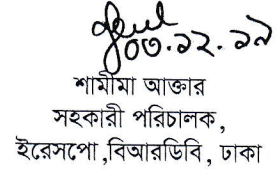 ০৩.১২.১৯
শামীমা আক্তার
সহকারী পরিচালক,
ইরেসপো ,বিআরডিবি, ঢাকা